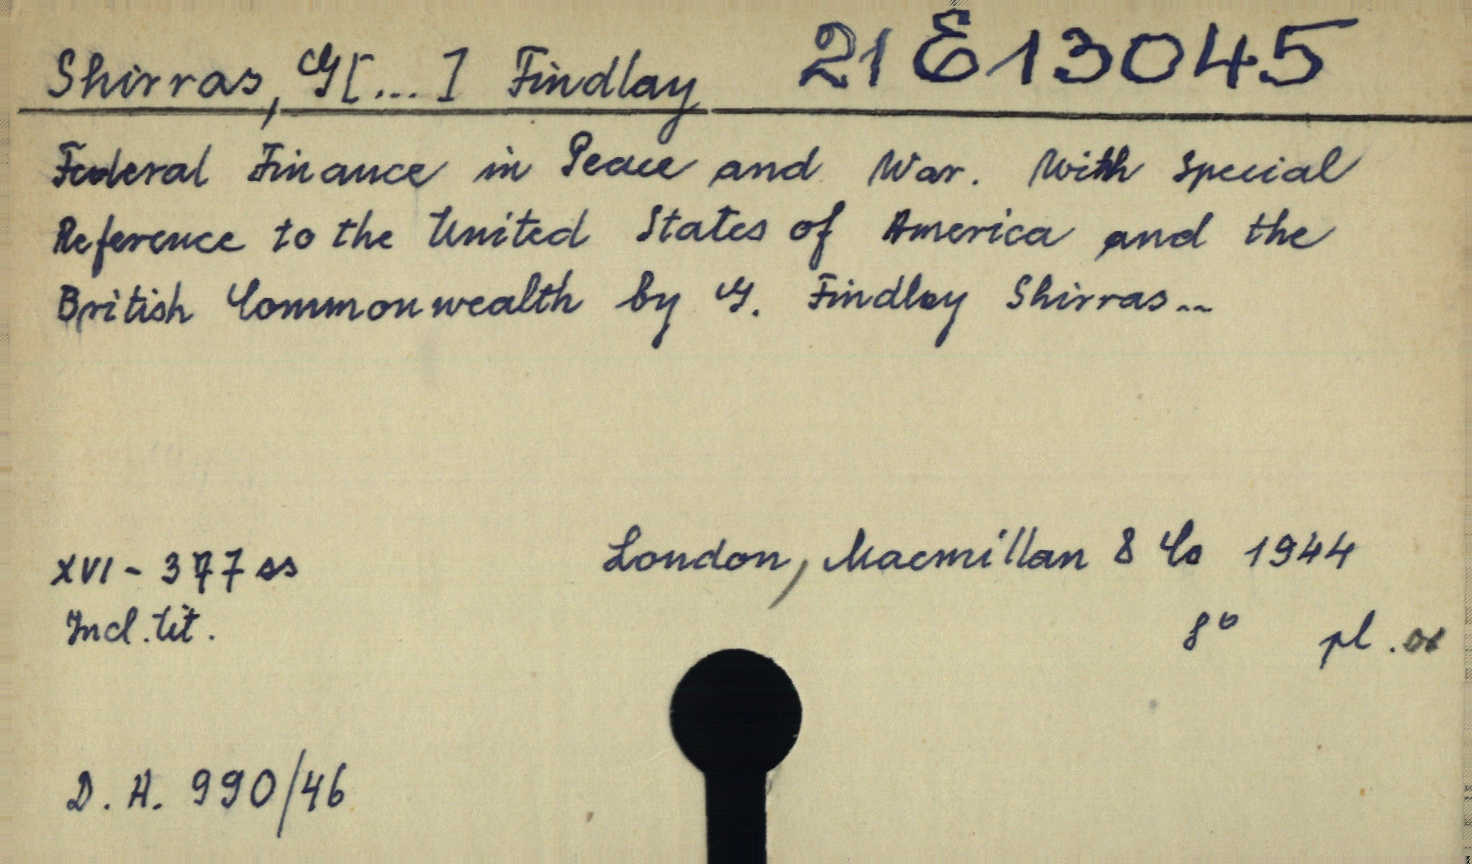 Shirras, G[...] Findlay 21E13045
Federal Finance in Peace and War. With Special
Reference to the United States of America and the
British Commonwealth by G. Findlay Shirras...
XVI - 377 ss London, Macmillan & Co 1944
Incl. tit. 8° pl.
D. H. 990/46